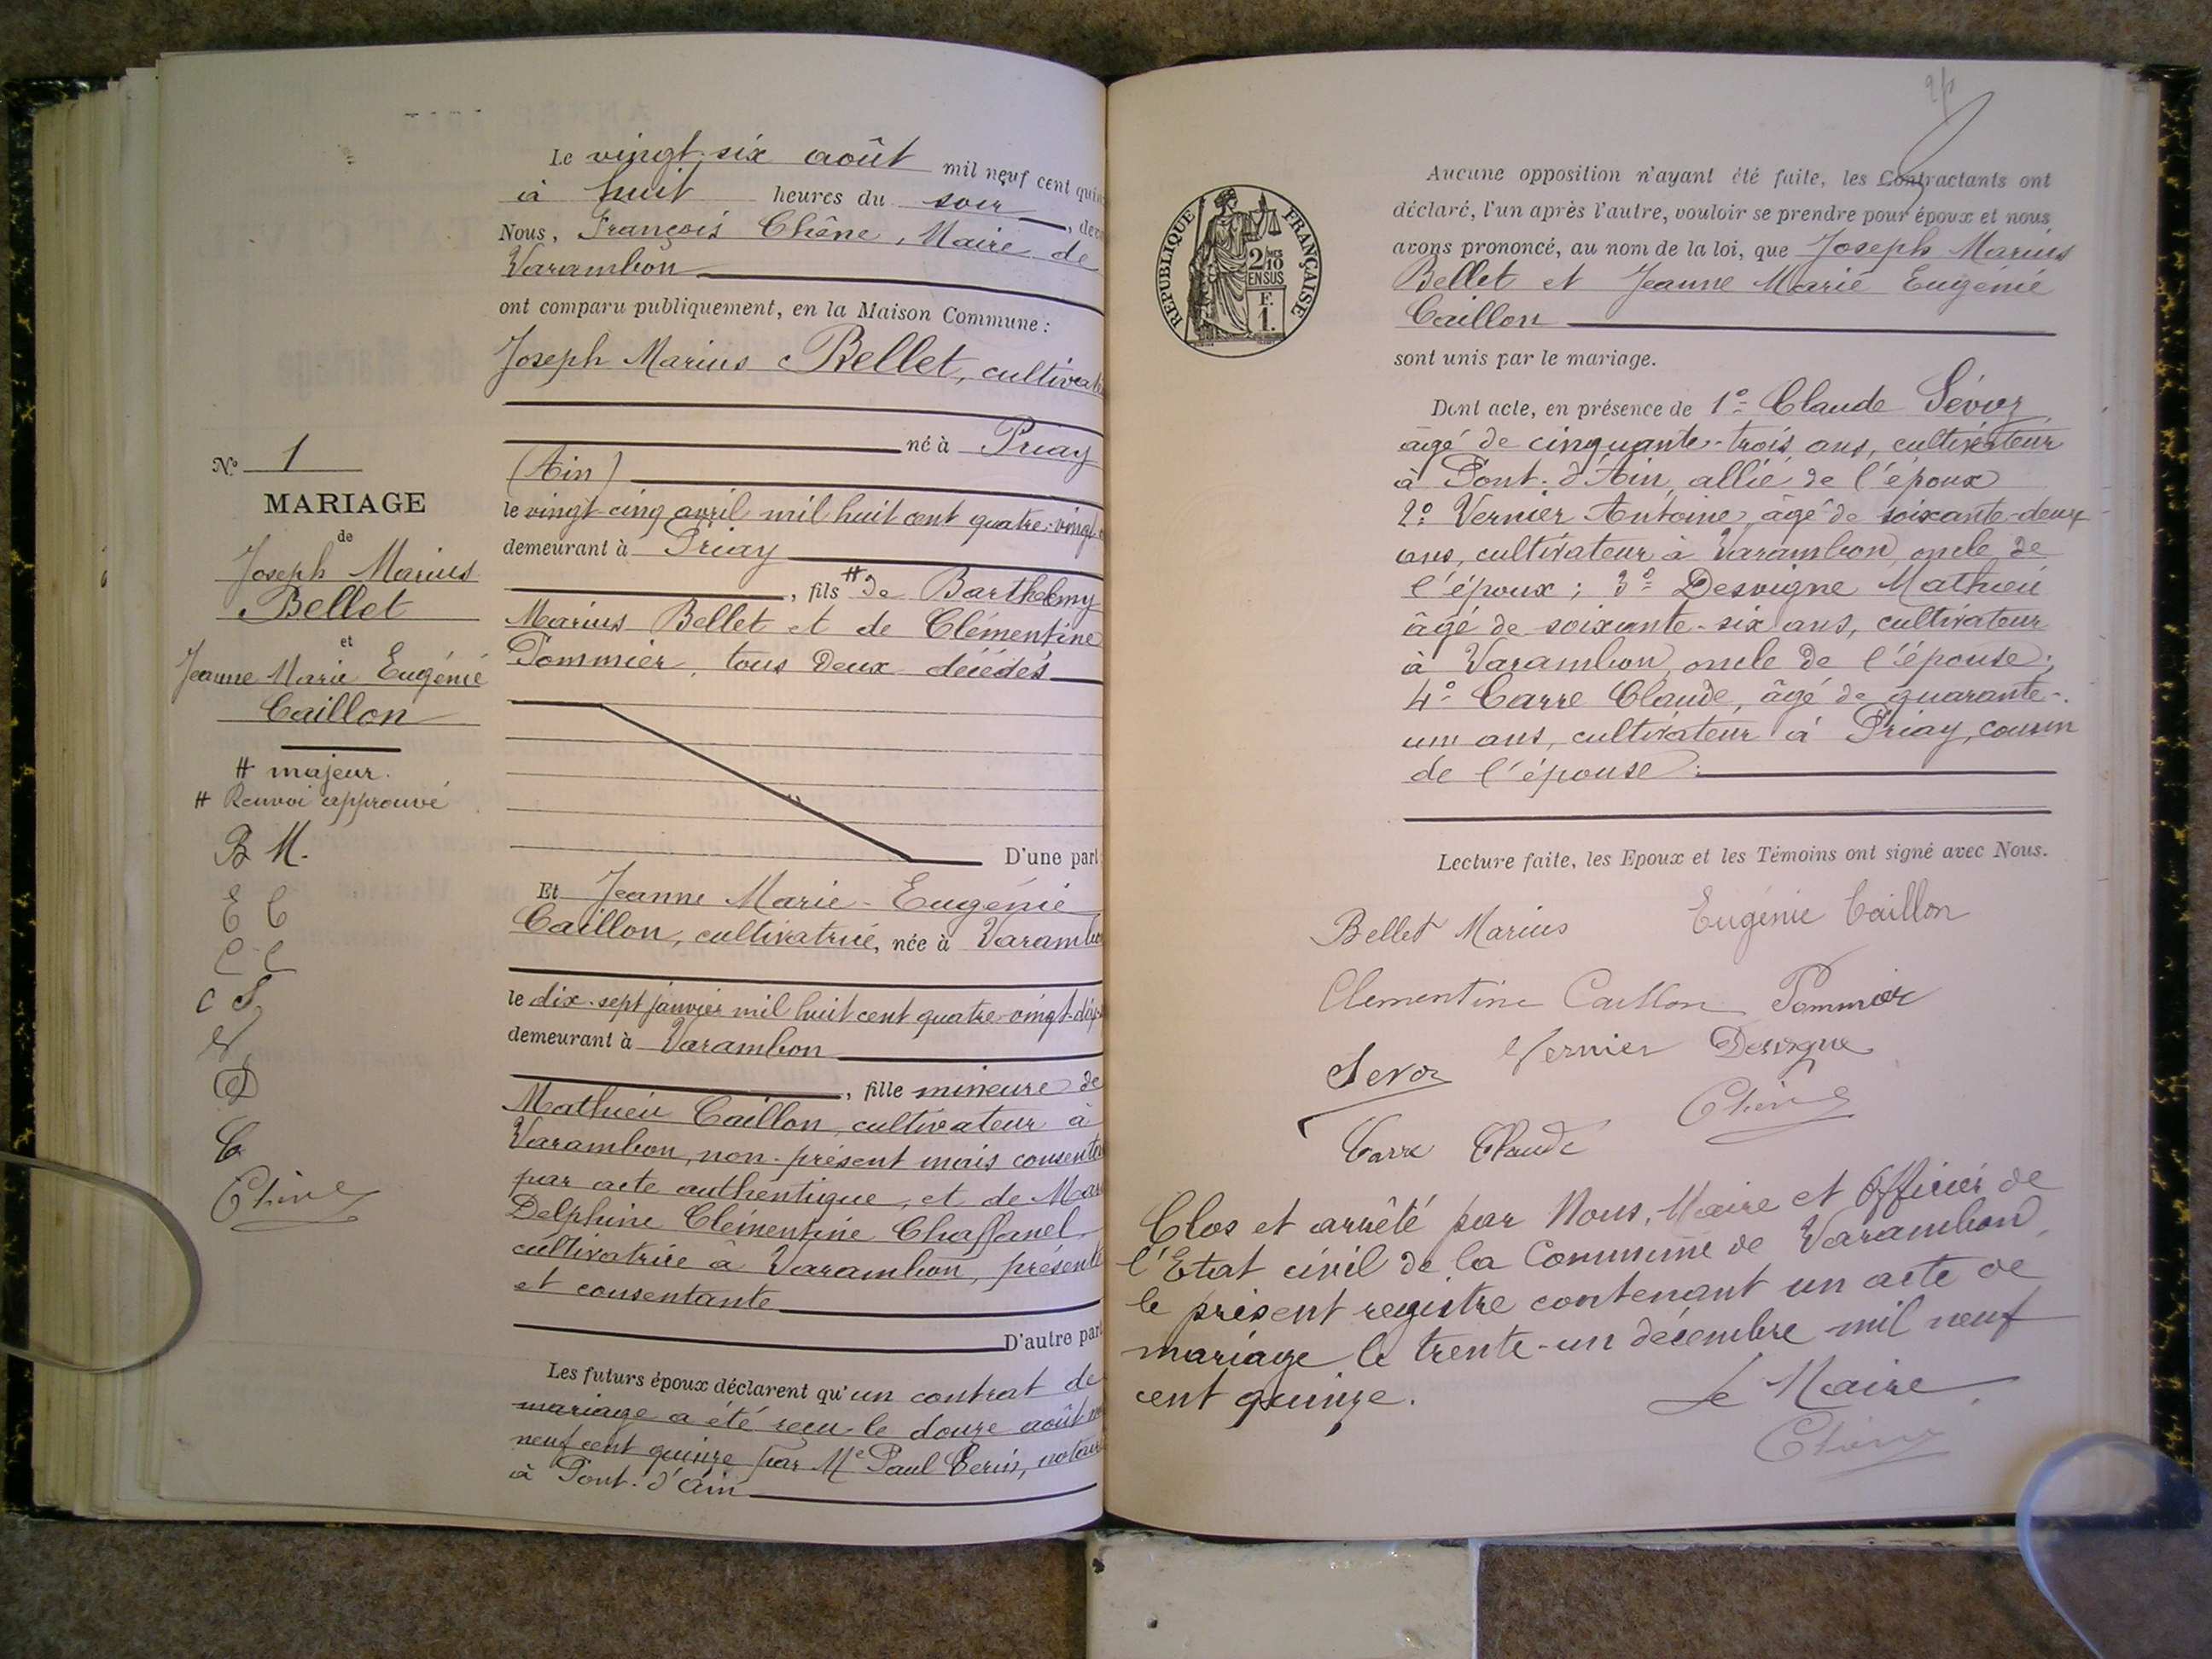 Le vingt-six août mil neuf cent quin
à huit heures du soir, dev
Nous, François Chêne, Maire de
Varambon
ont comparu publiquement, en la Maison Commune :
Joseph Marius Bellet, cultivat
né à Priay
(Ain)
le vingt-cinq avril mil huit cent quatre-vingt-
demeurant à Priay
, fils # de Barthelemy
Marius Bellet et de Clémentine
Pommier, tous deux décédés
D'une part
Et Jeanne Marie-Eugénie
Caillon, cultivatrice, née à Varambo
le dix-sept janvier mil huit cent quatre-vingt-dix-
demeurant à Varambon
, fille mineure de
Mathieu Caillon, cultivateur à
Varambon, non-présent mais consentan
par acte authentique, et de Mar
Delphine Clémentine Chaffanel
cultivatrice à Varambon, présente
et consentante
D'autre part
Les futurs époux déclarent qu'un contrat de
mariage a été reçu le douze août m
neuf cent quinze par Me Paul Cerin, notair
à Pont-d'Ain
N° 1
MARIAGE
de
Joseph Marius
Bellet
et
Jeanne Marie Eugénie
Caillon
# majeur.
# Renvoi approuvé
B M.
E C
C C
C S
V
D
C
Chêne
RÉPUBLIQUE FRANÇAISE
2/10
EN SUS
F.
1.
Aucune opposition n'ayant été faite, les Contractants ont
déclaré, l'un après l'autre, vouloir se prendre pour époux et nous
avons prononcé, au nom de la loi, que Joseph Marius
Bellet et Jeanne Marie Eugénie
Caillon
sont unis par le mariage.
Dont acte, en présence de 1° Claude Sévoz
âgé de cinquante-trois ans, cultivateur
à Pont-d'Ain, allié de l'époux
2° Vernier Antoine, âgé de soixante-deux
ans, cultivateur à Varambon, oncle de
l'époux ; 3° Desvigne Mathieu
âgé de soixante-six ans, cultivateur
à Varambon, oncle de l'épouse ;
4° Carre Claude, âgé de quarante-
un ans, cultivateur à Priay, cousin
de l'épouse.
Lecture faite, les Epoux et les Témoins ont signé avec Nous.
Bellet Marius Eugénie Caillon
Clementine Caillon Pommier
Sevoz Vernier Desvigne
Carre Claude Chêne
Clos et arrêté par Nous, Maire et Officier de
l'Etat civil de la Commune de Varambon,
le présent registre contenant un acte de
mariage le trente-un décembre mil neuf
cent quinze. Le Maire
Chêne